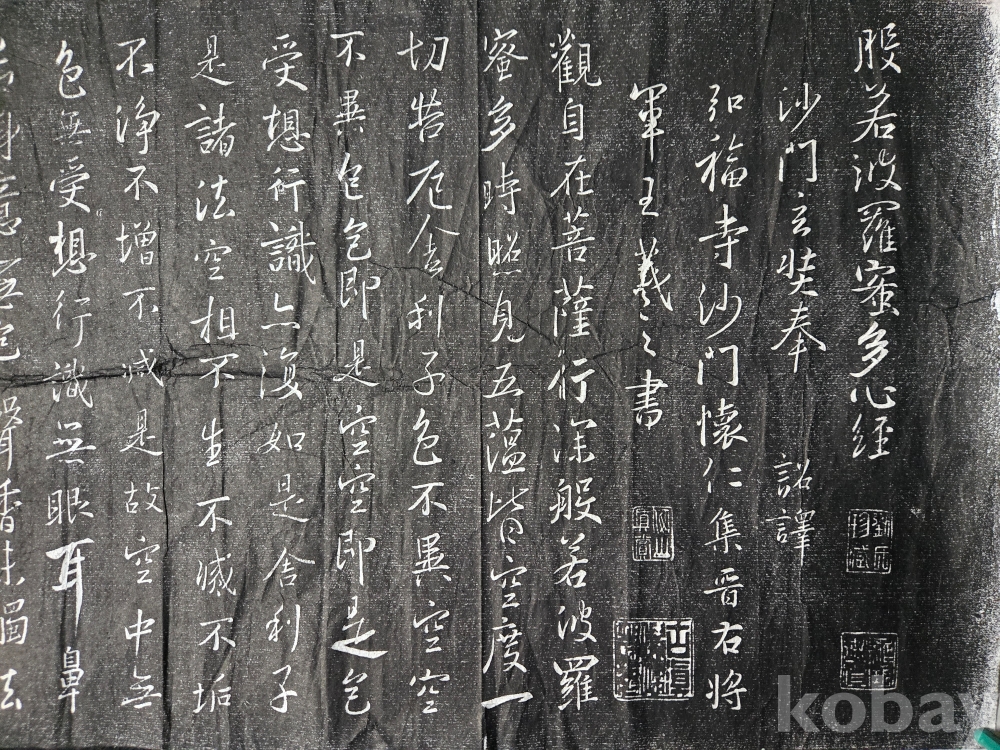 般若波羅蜜多心經
沙門玄奘奉 詔譯
弘福寺沙門懷仁集晋右將
軍王羲之書
觀自在菩薩行深般若波羅
蜜多時照見五蘊皆空度一
切苦厄舍利子色不異空空
不異色色即是空空即是色
受想行識亦復如是舍利子
是諸法空相不生不滅不垢
不淨不增不減是故空中無
色無受想行識無眼耳鼻
舌身意無色聲香味觸法
kobay